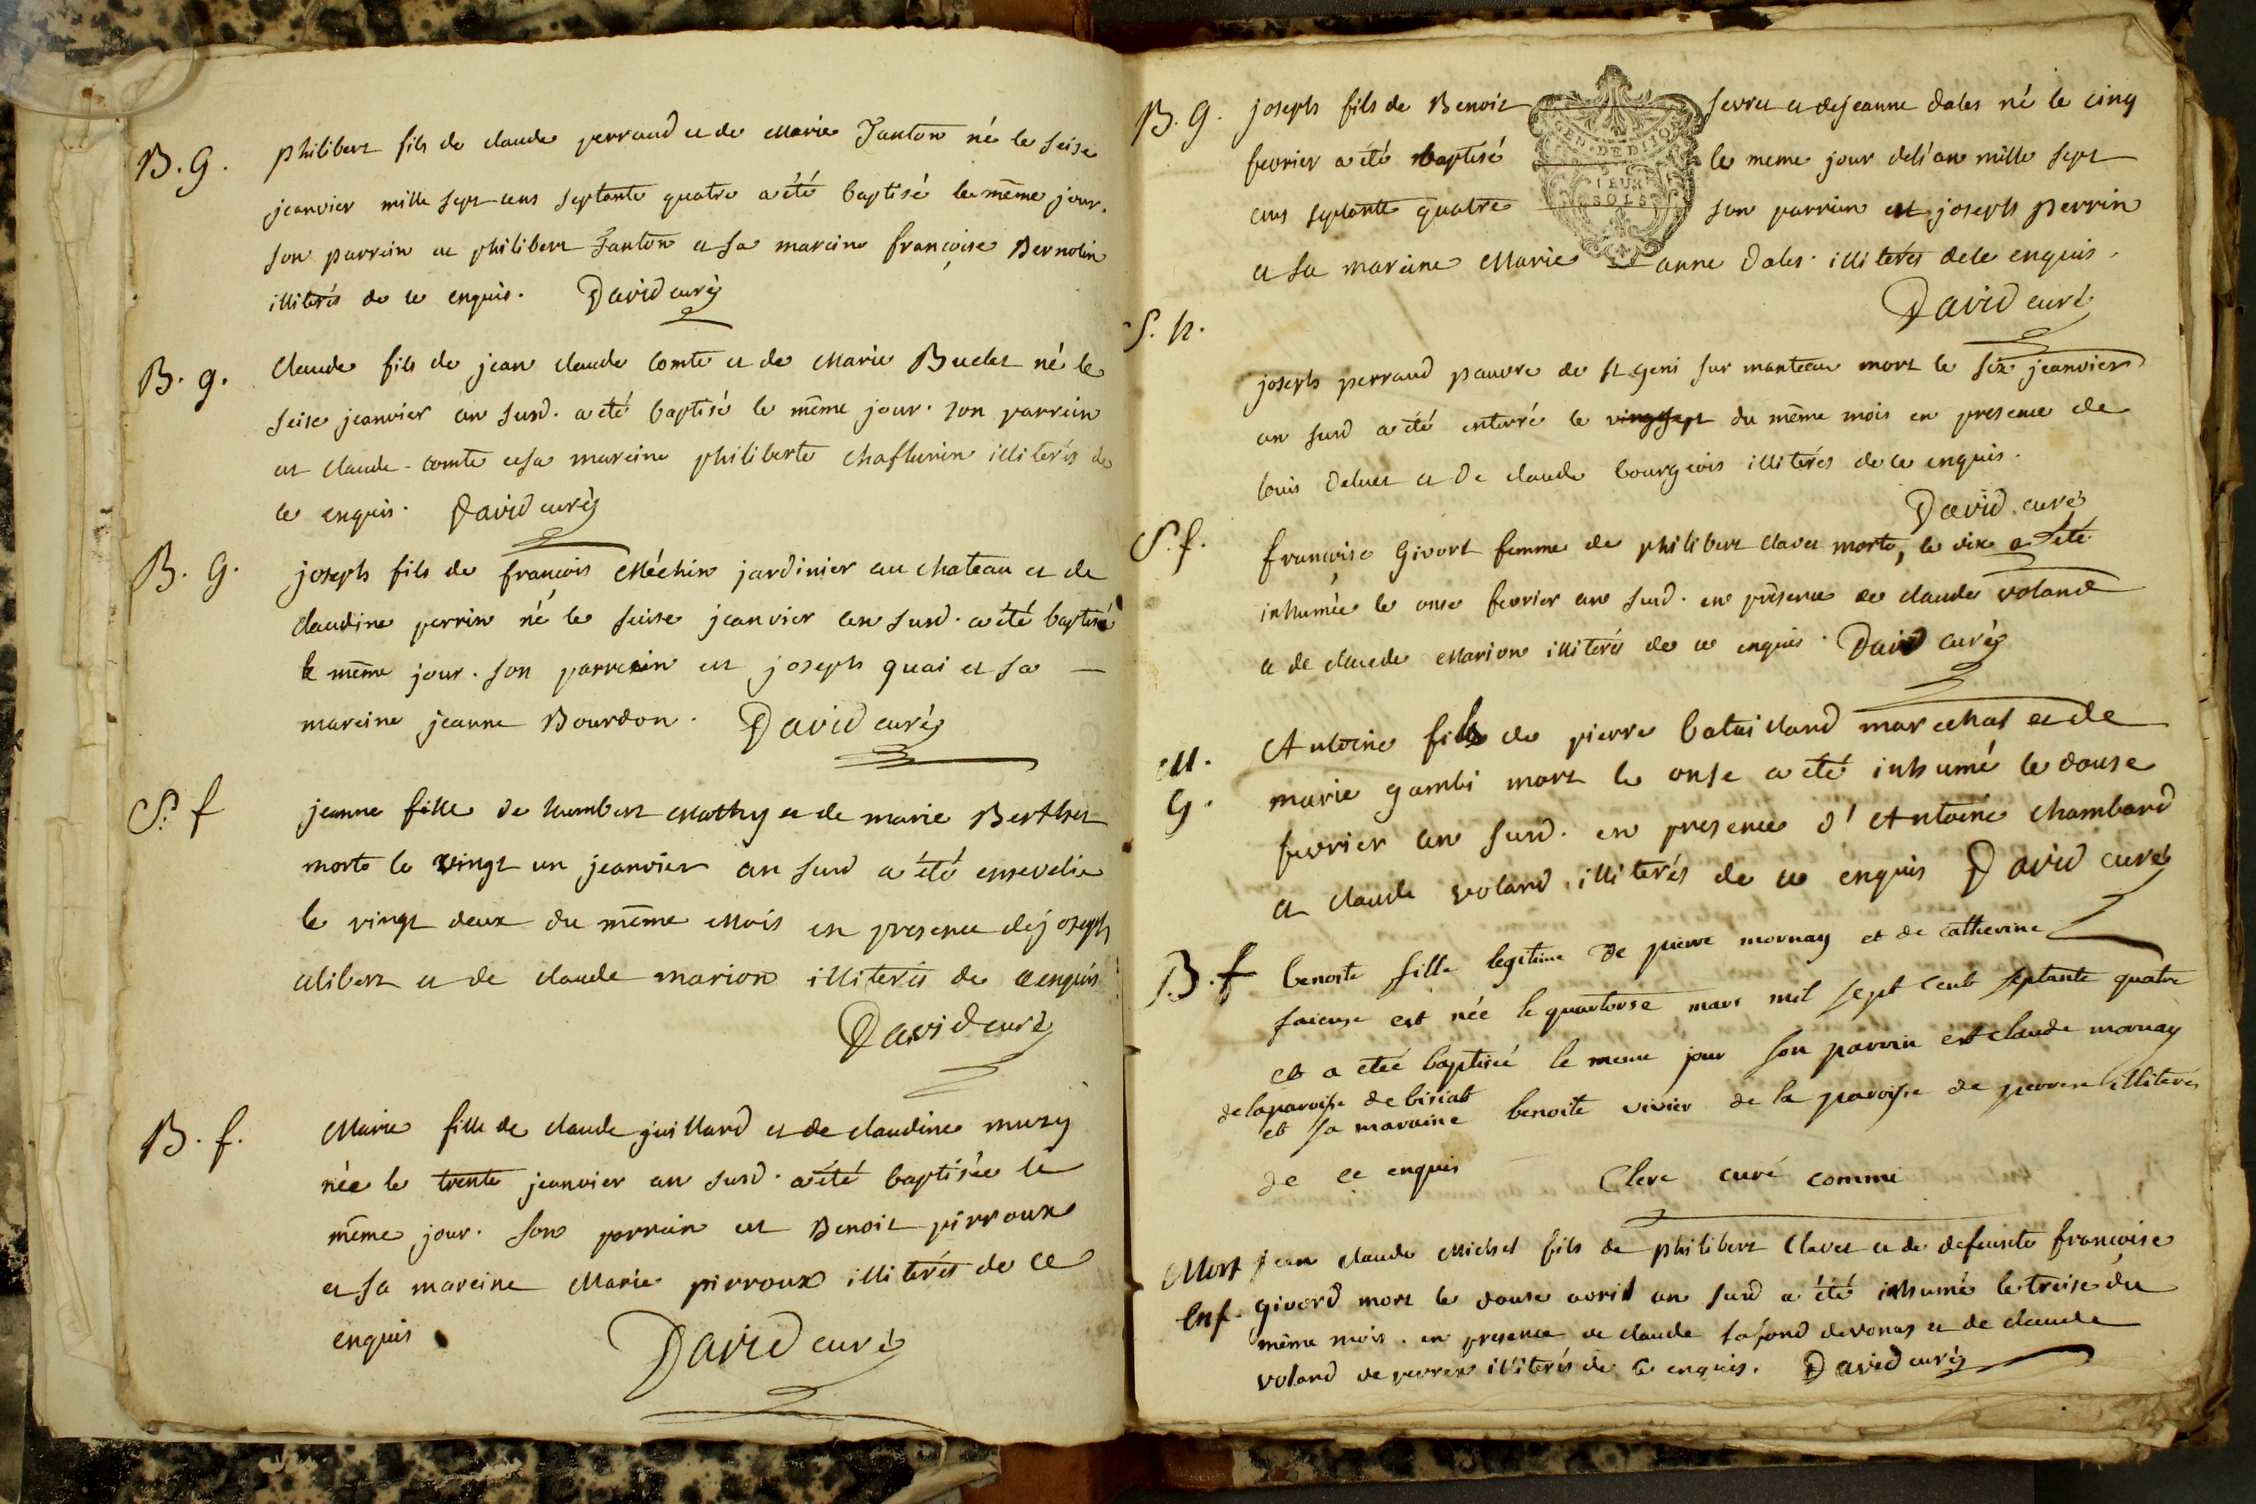 B. G. philibert fils de claude perraud et de Marie Janton né le seise
jeanvier mille sept cens septante quatre a été baptisé le même jour.
son parrein et philibert Janton et sa mareine françoise Bernolin
illiterés de ce enquis. David curé
B. g. Claude fils de jean claude Comte et de Marie Buclet né le
seise jeanvier an susd. a été baptisé le même jour. son parrein
est claude comte et sa mareine philiberte illiterés de
ce enquis. David curé
B. G. joseph fils de francois Méchin jardinier au chateau et de
claudine perrin né le seise jeanvier an susd. a été baptisé
le même jour. son parrein est joseph quai et sa —
mareine jeanne Bourdon. David curé
S. f jeanne fille de humbert Mathy et de marie Berthet
morte le vingt un jeanvier an susd a été ensevelie
le vingt deux du même Mois en presence de joseph
alibert et de claude marion illiterés de ce enquis
David curé
B. f. Marie fille de claude guillard et de claudine musy
née le trente jeanvier an susd. a été baptisée le
même jour. son parrein est Benoit pirroux
et sa mareine Marie pirroux illiterés de ce
enquis
David curé
B. G. joseph fils de Benoit ferret et de jeanne dales né le cinq
fevrier a été baptisé le meme jour de l'an mille sept
cens septante quatre son parrein est joseph perrin
et sa mareine Marie anne dales illiterés de ce enquis.
GEN. DE DIJON
DEUX
SOLS
David curé
S. h.
joseph perraud pauvre de st geni sur manteau mort le six jeanvier
an susd a été enterré le vingt sept du même mois en presence de
louis deluet et de claude bourgeois illiterés de ce enquis.
David curé
S. f. francoise Givort femme de philibert clavet morte, le dix a été
inhumée le onse fevrier an susd. en présence de claude voland
et de claude Marion illiterés de ce enquis. David curé
M. Antoine fils de pierre bataillard marechal et de
G. marie gambi mort le onse a été inhumé le douse
fevrier an susd. en presence d'Antoine Chambard
et claude voland illiterés de ce enquis David curé
B. f benoite fille legitime de pierre mornay et de catherine
est née le quatorse mars mil sept cent septante quatre
et a eteé baptiseé le meme jour son parrin est claude mornay
de la paroisse de bisiat
et sa maraine benoite vivier de la paroisse de perrex illiterés
de ce enquis Clerc curé commi
Mort jean claude Michel fils de philibert Clavet et de defeunte francoise
Enf. givord mort le douse avril an susd a été inhumé le treise du
même mois. en presence de claude lafond de vonas et de claude
voland de perrex illiterés de ce enquis. David curé